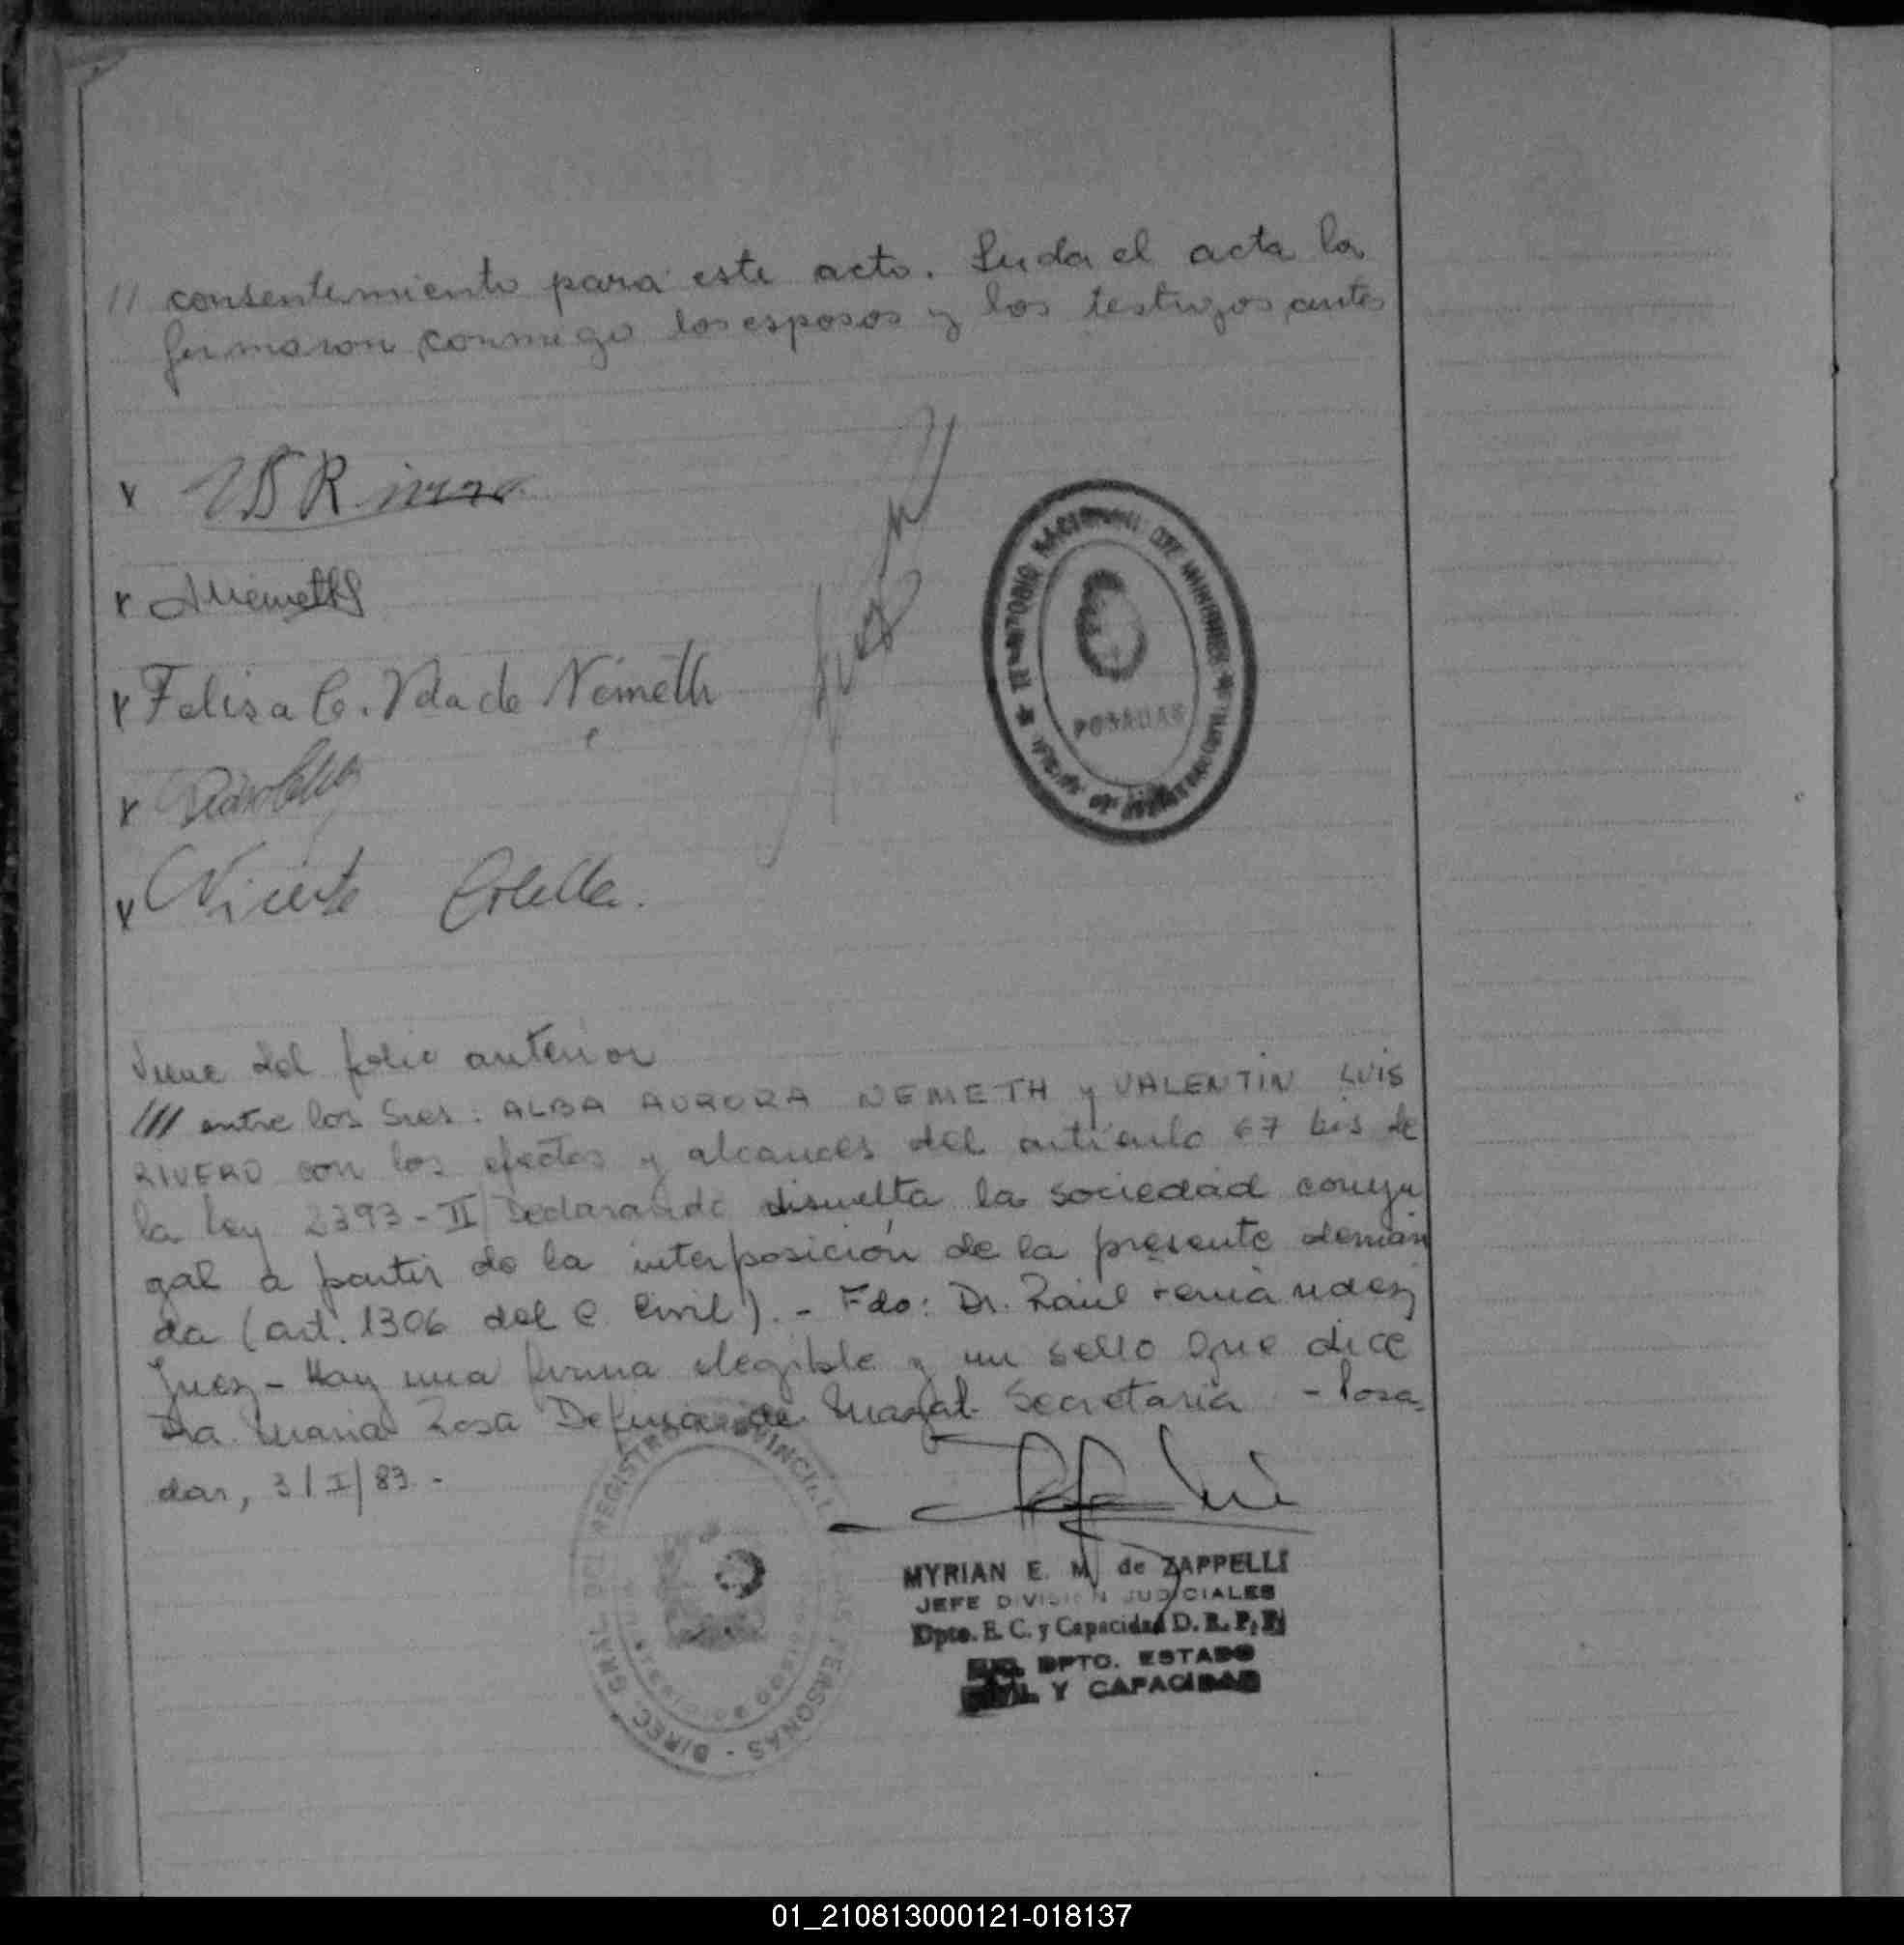 // consentimiento para este acto. Leida el acta la
firmaron conmigo los esposos y los testigos antes
x
x ANemeth
x Felisa C. Vda de Németh
x
x Vicente Colella.
TERRITORIO NACIONAL DE MISIONES
POSADAS
Viene del folio anterior
/// entre los Sres: ALBA AURORA NEMETH y VALENTIN LUIS
RIVERO con los efectos y alcances del artículo 67 bis de
la Ley 2393 - II/ Declarando disuelta la sociedad conyu
gal a partir de la interposición de la presente deman
da (art. 1306 del C. Civil). - Fdo: Dr. Raúl Fernández
Juez - Hay una firma ilegible y un sello que dice
Dra. Maria Rosa de Secretaria - Posa
das, 3/I/83. -
DIREC. GRAL. DEL REGISTRO PROVINCIAL DE LAS PERSONAS -
MYRIAN E. M. de ZAPPELLI
JEFE DIVISION JUDICIALES
Dpto. E. C. y Capacidad D. R. P. P.
DPTO. ESTADO
CIVIL Y CAPACIDAD
01_210813000121-018137